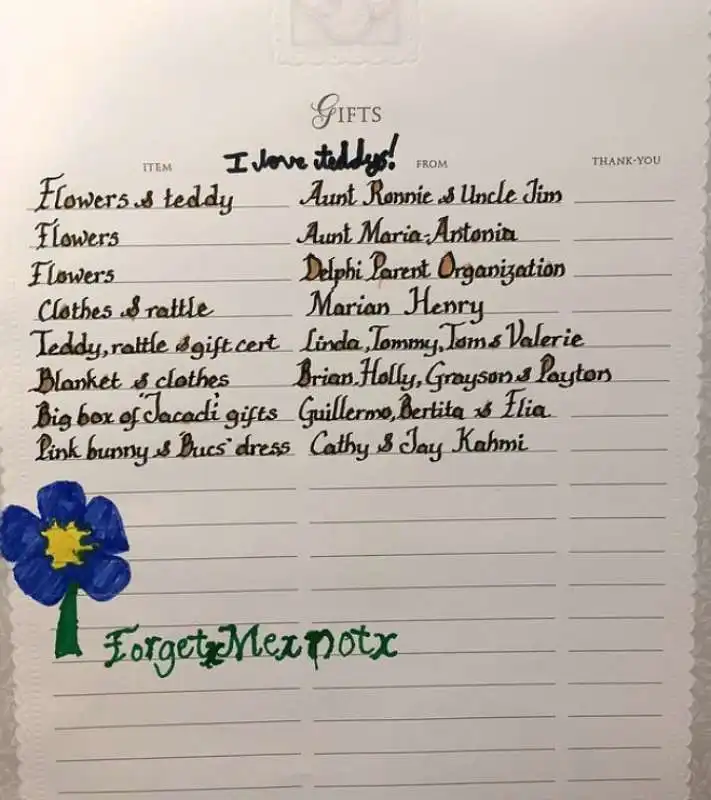 GIFTS
I love teddys!
ITEM FROM THANK-YOU
Flowers & teddy Aunt Ronnie & Uncle Jim
Flowers Aunt Maria-Antonia
Flowers Delphi Parent Organization
Clothes & rattle Marian Henry
Teddy, rattle & gift cert Linda, Tommy, Tom & Valerie
Blanket & clothes Brian, Holly, Grayson & Payton
Big box of 'Jacadi' gifts Guillermo, Bertita & Elia
Pink bunny & Bucs' dress Cathy & Jay Kahmi
ForgetxMexnotx